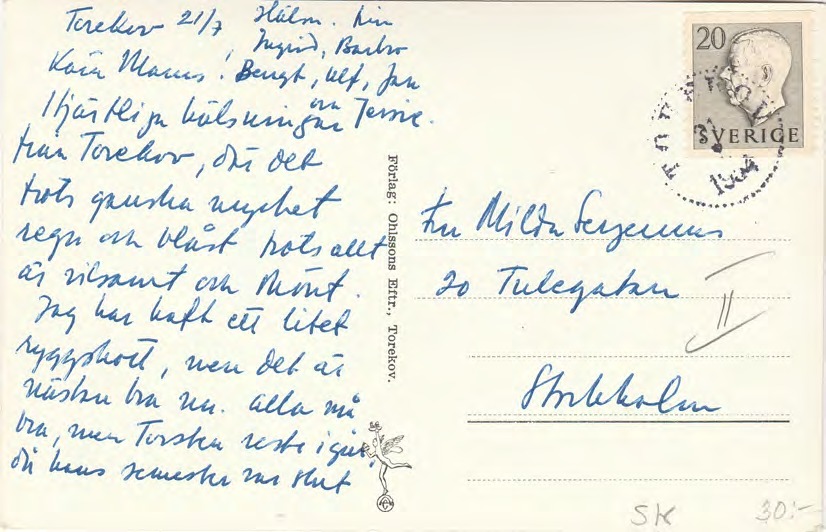 Torekov 21/7
Hälsn. din
Ingrid, Barbro
Bengt, Ulf, Jan
och Jessie.
Kära Moms!
Hjärtliga hälsningar
från Torekov, där det
trots ganska mycket
regn och blåst trots allt
är vilsamt och skönt.
Jag har haft ett litet
ryggskott, men det är
nästan bra nu. Alla må
bra, men Torsten reste igår,
då hans semester var slut
Förlag: Ohlssons Eftr., Torekov.
20
SVERIGE
TOREKOV
21
Fru Milda
20 Tulegatan
II
Stockholm
Sth
30:-